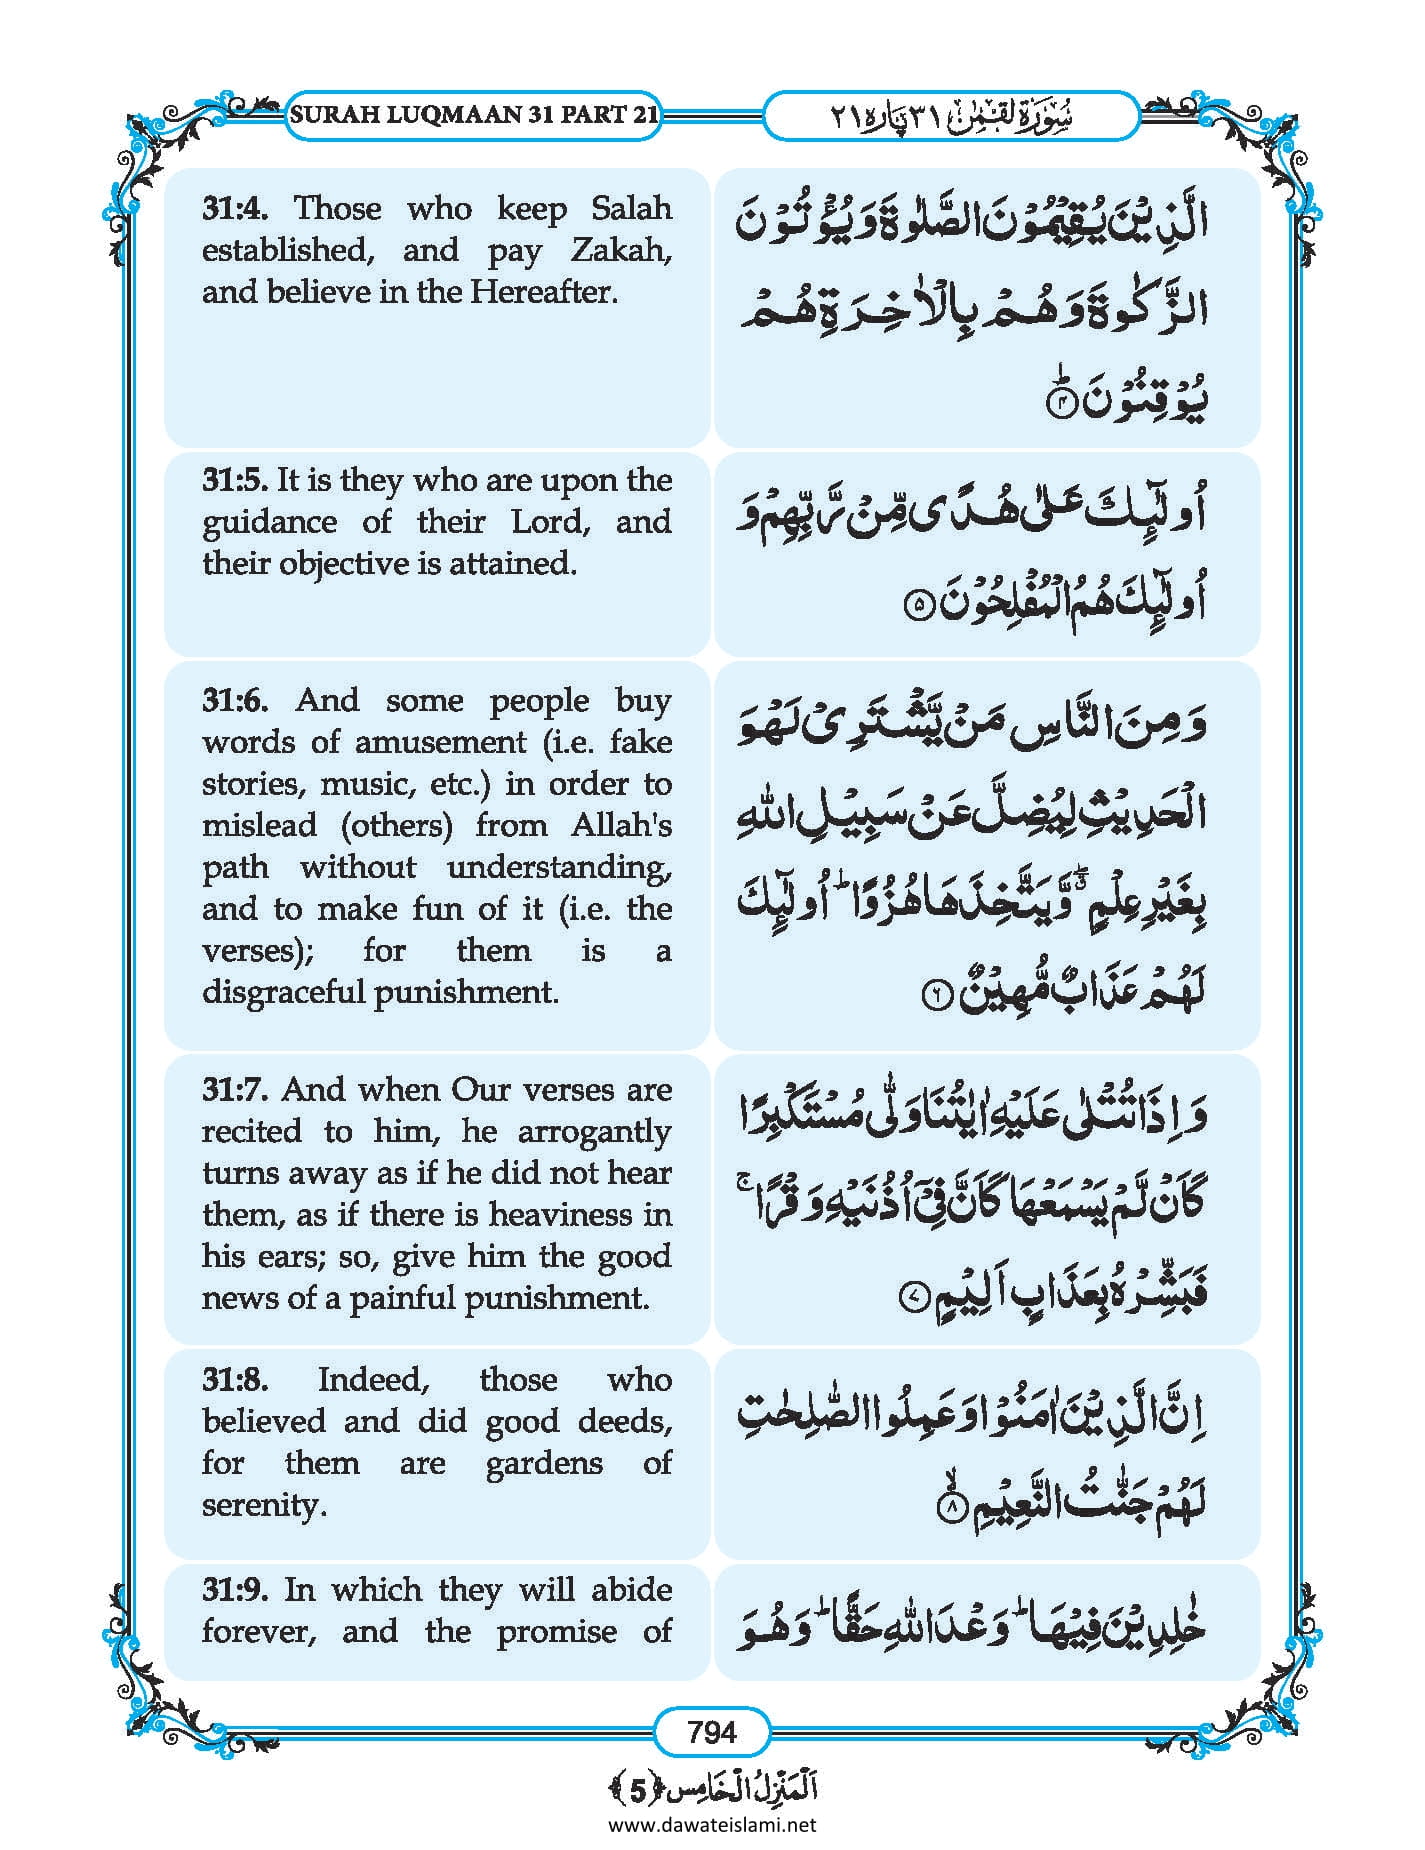 SURAH LUQMAAN 31 PART 21
سُوْرَةُ لُقْمٰنَ ۳۱ پارہ ۲۱
31:4. Those who keep Salah
established, and pay Zakah,
and believe in the Hereafter.
الَّذِیْنَ یُقِیْمُوْنَ الصَّلٰوةَ وَ یُؤْتُوْنَ
الزَّكٰوةَ وَ هُمْ بِالْاٰخِرَةِ هُمْ
یُوْقِنُوْنَؕ ۴
31:5. It is they who are upon the
guidance of their Lord, and
their objective is attained.
اُولٰٓىٕكَ عَلٰى هُدًى مِّنْ رَّبِّهِمْ وَ
اُولٰٓىٕكَ هُمُ الْمُفْلِحُوْنَ ۵
31:6. And some people buy
words of amusement (i.e. fake
stories, music, etc.) in order to
mislead (others) from Allah's
path without understanding,
and to make fun of it (i.e. the
verses); for them is a
disgraceful punishment.
وَ مِنَ النَّاسِ مَنْ یَّشْتَرِیْ لَهْوَ
الْحَدِیْثِ لِیُضِلَّ عَنْ سَبِیْلِ اللّٰهِ
بِغَیْرِ عِلْمٍ ﳓ وَّ یَتَّخِذَهَا هُزُوًاؕ اُولٰٓىٕكَ
لَهُمْ عَذَابٌ مُّهِیْنٌ ۶
31:7. And when Our verses are
recited to him, he arrogantly
turns away as if he did not hear
them, as if there is heaviness in
his ears; so, give him the good
news of a painful punishment.
وَ اِذَا تُتْلٰى عَلَیْهِ اٰیٰتُنَا وَلّٰى مُسْتَكْبِرًا
كَاَنْ لَّمْ یَسْمَعْهَا كَاَنَّ فِیْۤ اُذُنَیْهِ وَقْرًاۚ
فَبَشِّرْهُ بِعَذَابٍ اَلِیْمٍ ۷
31:8. Indeed, those who
believed and did good deeds,
for them are gardens of
serenity.
اِنَّ الَّذِیْنَ اٰمَنُوْا وَ عَمِلُوا الصّٰلِحٰتِ
لَهُمْ جَنّٰتُ النَّعِیْمِۙ ۸
31:9. In which they will abide
forever, and the promise of
خٰلِدِیْنَ فِیْهَاؕ وَعْدَ اللّٰهِ حَقًّاؕ وَ هُوَ
794
اَلْمَنْزِلُ الْخَامِس ﴿5﴾
www.dawateislami.net